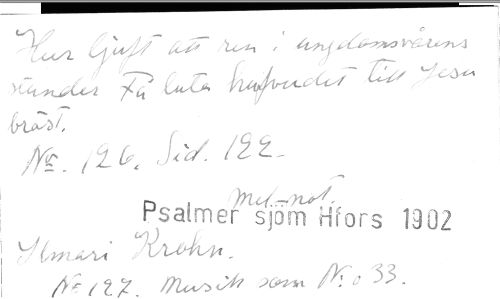 Hur ljuft att ren i ungdomsvårens
stunder Få luta hufvudet till Jesu
bröst.
No. 126. Sid. 122.
Mel. not.
Psalmer sjöm Hfors 1902
Ilmari Krohn.
No 127. Musik som No: 33.